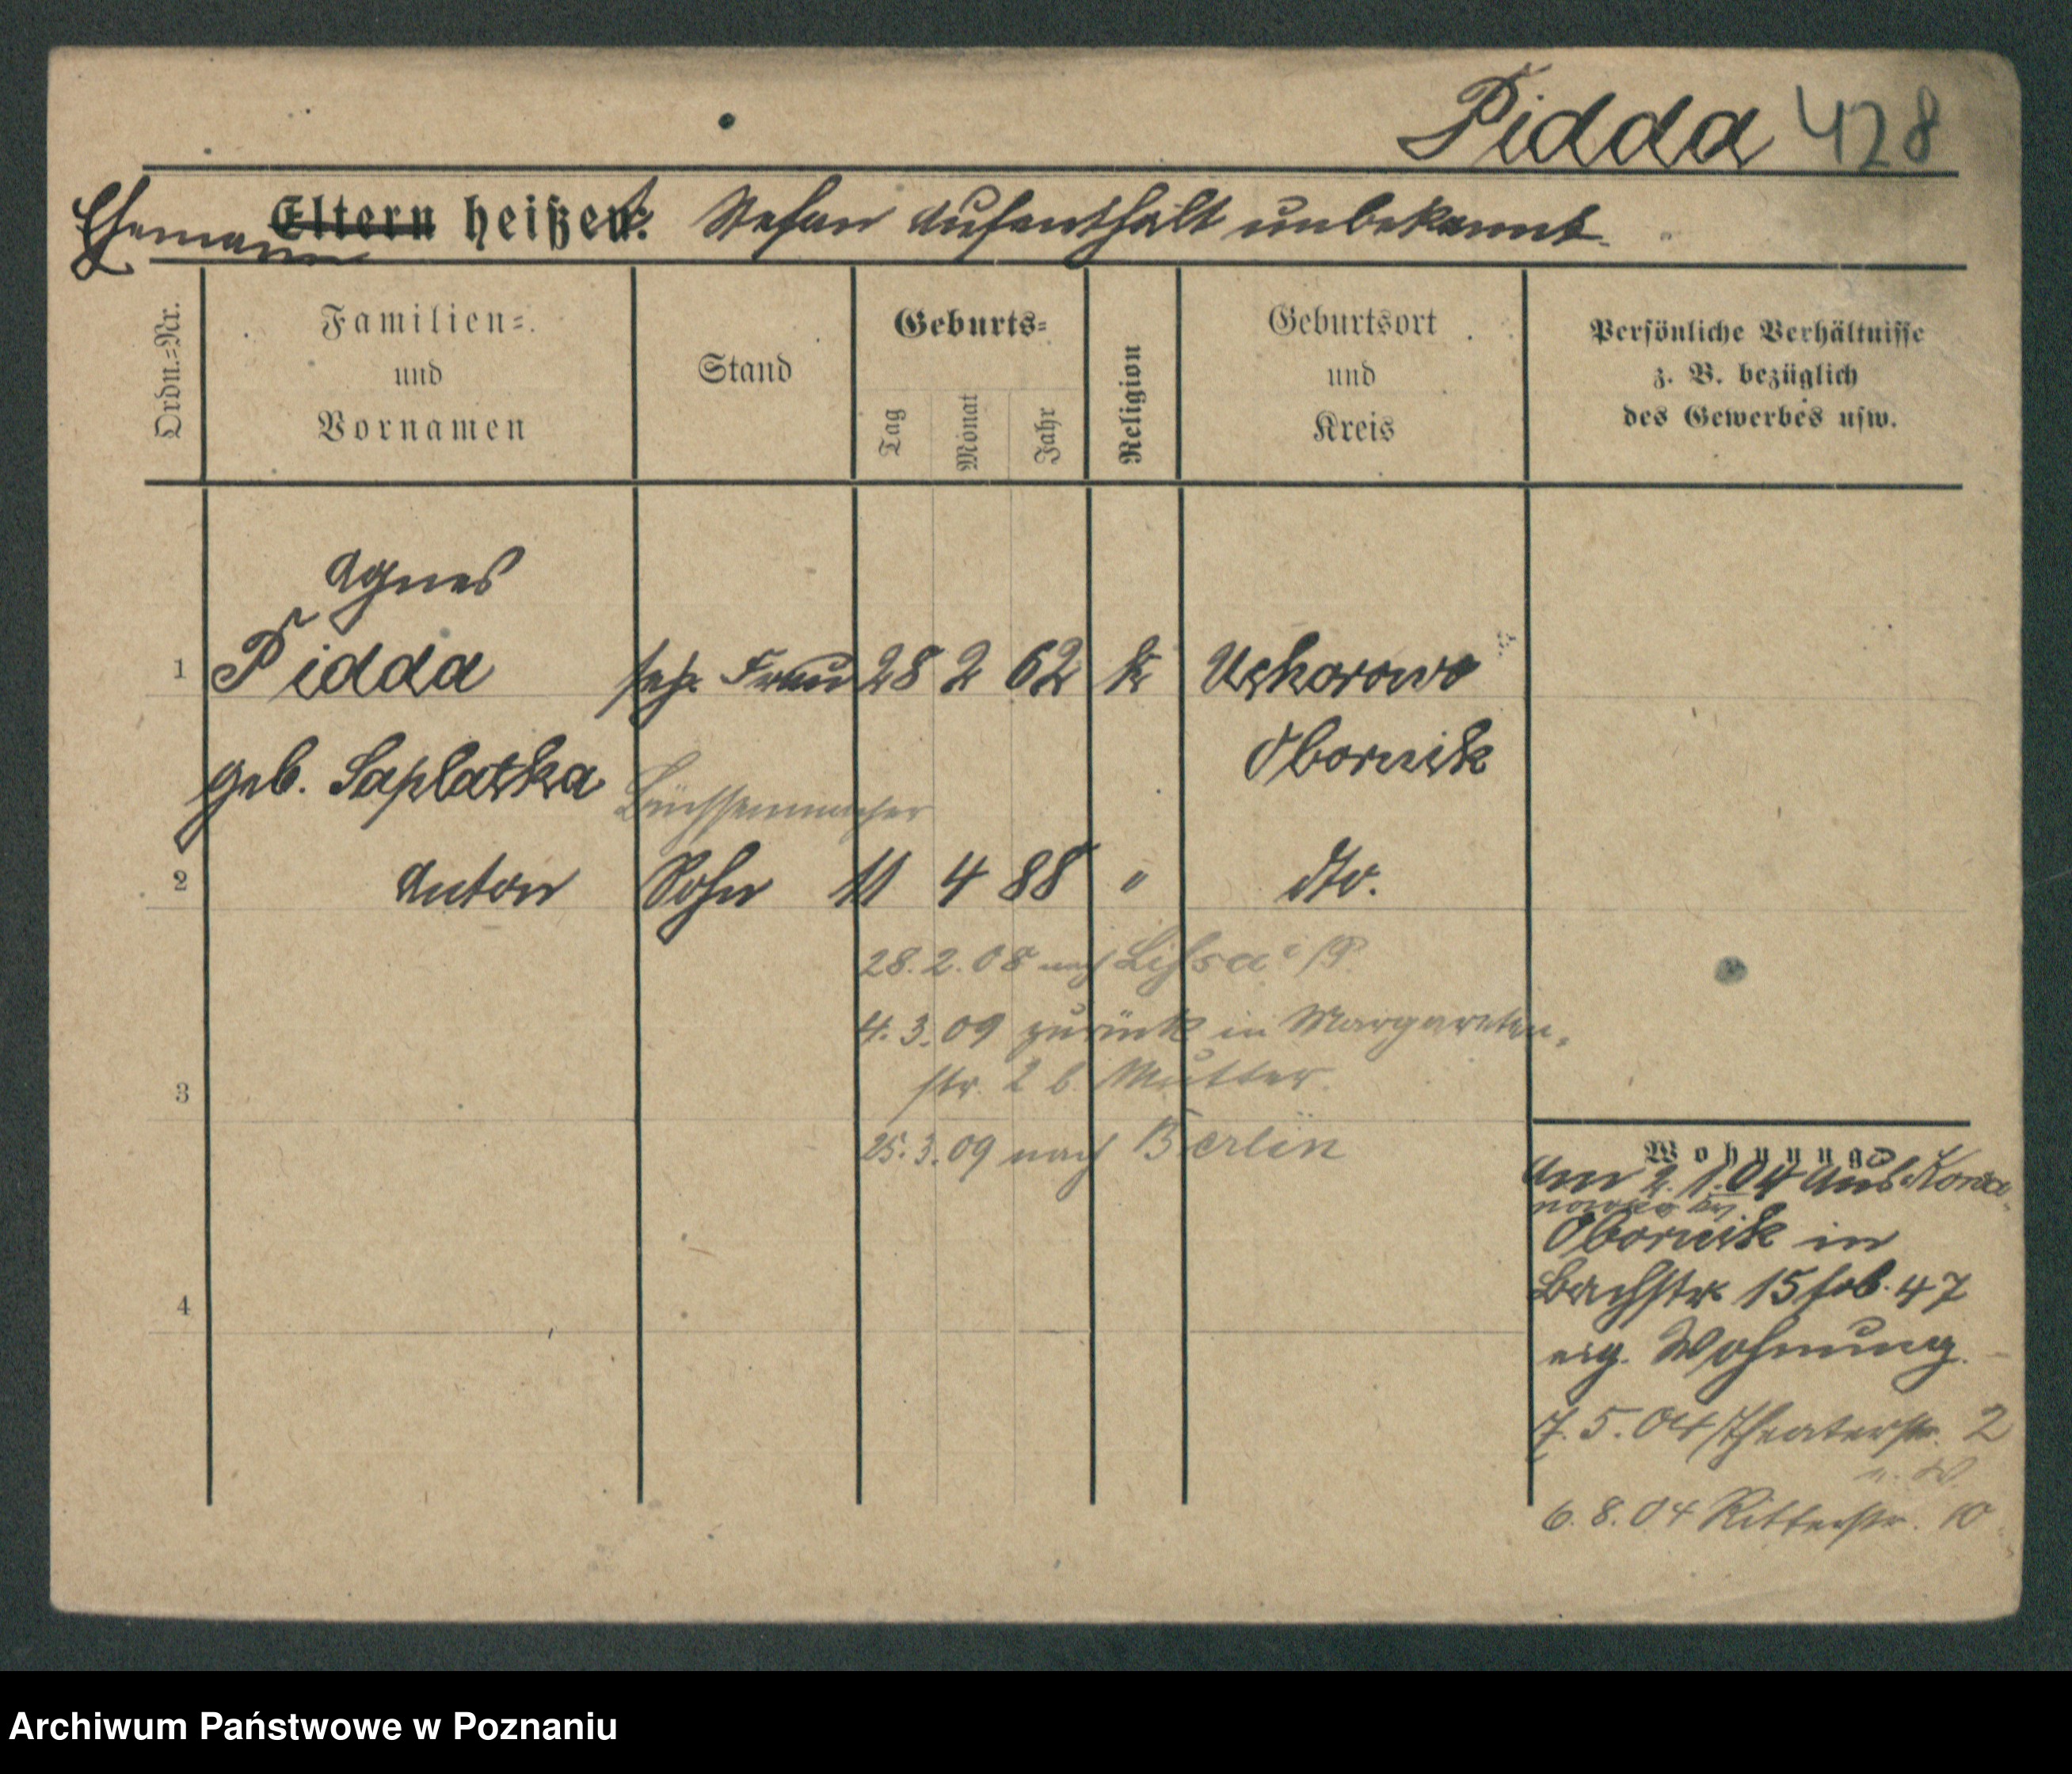 Pidda 428
Ehemann Eltern heißen: Stefan Aufenthalt unbekannt.
Ordn.=Nr.
Familien=
und
Vornamen
Stand
Geburts=
Tag
Monat
Jahr
Religion
Geburtsort
und
Kreis
Persönliche Verhältnisse
z. B. bezüglich
des Gewerbes usw.
Agnes
1 Pidda sep. Frau 28 2 62 k
geb. Saplatka Obornik
Büchsenmacher
2 Anton Sohn 11 4 88 " dto.
28.2.08 nach Lissa i/P.
4.3.09 zurück in Margareten-
3 str. 2 b. Mutter.
25.3.09 nach Berlin
4
Wohnung
Am 2.1.04 aus
Obornik in
Bachstr. 15 47
eig. Wohnung.
7.5.04 Theaterstr. 2
6.8.04 Ritterstr. 10
Archiwum Państwowe w Poznaniu